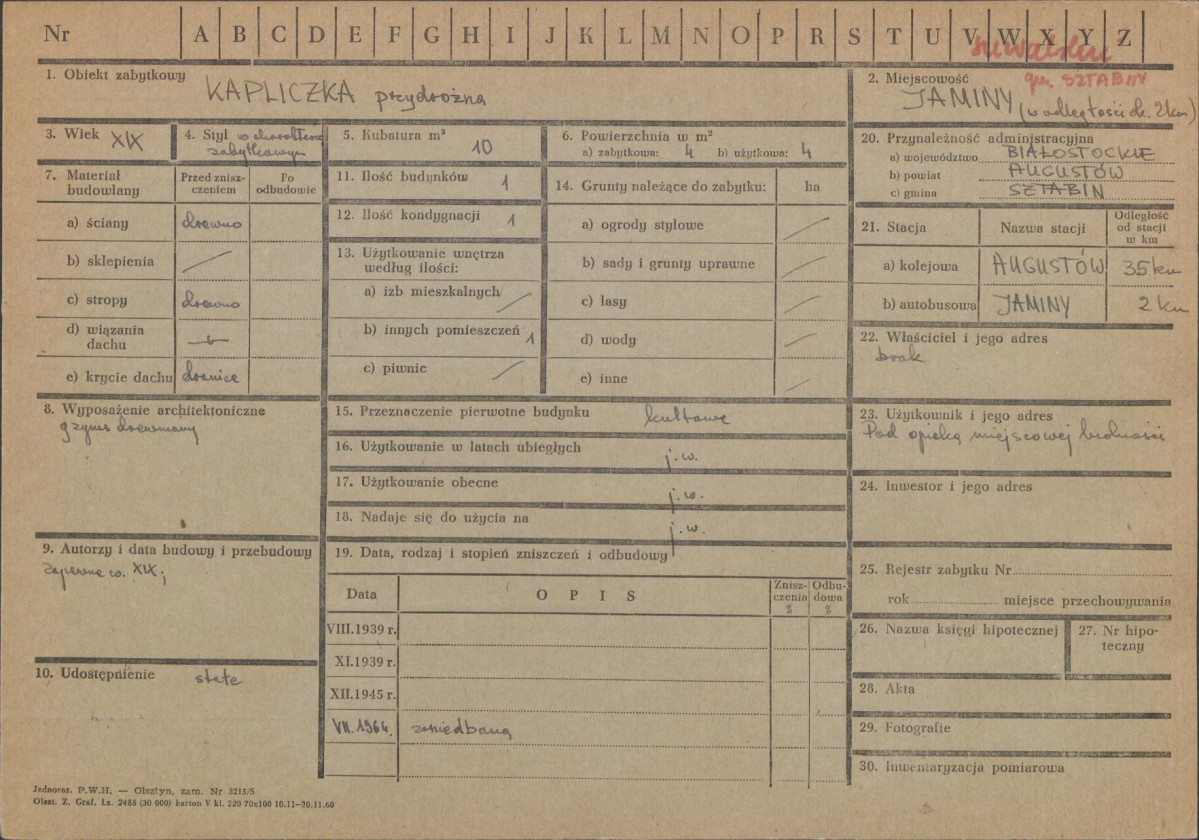 Nr A B C D E F G H I J K L M N O P R S T U V W X Y Z
suwalskie
gm. SZTABIN
1. Obiekt zabytkowy KAPLICZKA przydrożna
2. Miejscowość
JAMINY (w odległości ok. 2 km)
3. Wiek XIX
4. Styl o charakterze
zabytkowym
5. Kubatura m³
10
6. Powierzchnia w m²
a) zabytkowa: 4 b) użytkowa: 4
7. Materiał
budowlany
Przed znisz-
czeniem
Po
odbudowie
a) ściany drewno
b) sklepienia
c) stropy drewno
d) wiązania
dachu
e) krycie dachu dranice
8. Wyposażenie architektoniczne
gzyms drewniany
9. Autorzy i data budowy i przebudowy
zapewne w. XIX;
10. Udostępnienie stałe
11. Ilość budynków 1
12. Ilość kondygnacji 1
13. Użytkowanie wnętrza
według ilości:
a) izb mieszkalnych
b) innych pomieszczeń 1
c) piwnic
14. Grunty należące do zabytku: ha
a) ogrody stylowe
b) sady i grunty uprawne
c) lasy
d) wody
e) inne
15. Przeznaczenie pierwotne budynku kultowe
16. Użytkowanie w latach ubiegłych j.w.
17. Użytkowanie obecne j.w.
18. Nadaje się do użycia na j.w.
19. Data, rodzaj i stopień zniszczeń i odbudowy
Data O P I S
Znisz-
czenia
%
Odbu-
dowa
%
VIII.1939 r.
XI.1939 r.
XII.1945 r.
VII.1964. zaniedbana
20. Przynależność administracyjna
a) województwo BIAŁOSTOCKIE
b) powiat AUGUSTÓW
c) gmina SZTABIN
21. Stacja Nazwa stacji
Odległość
od stacji
w km
a) kolejowa AUGUSTÓW 35 km
b) autobusowa JAMINY 2 km
22. Właściciel i jego adres
brak
23. Użytkownik i jego adres
Pod opieką miejscowej ludności
24. Inwestor i jego adres
25. Rejestr zabytku Nr
rok miejsce przechowywania
26. Nazwa księgi hipotecznej
27. Nr hipo-
teczny
28. Akta
29. Fotografie
30. Inwentaryzacja pomiarowa
Jednoraz. P.W.H. — Olsztyn, zam. Nr 3215/S
Olszt. Z. Graf. Lz. 2485 (30 000) karton V kl. 220 70x100 10.11—30.11.60